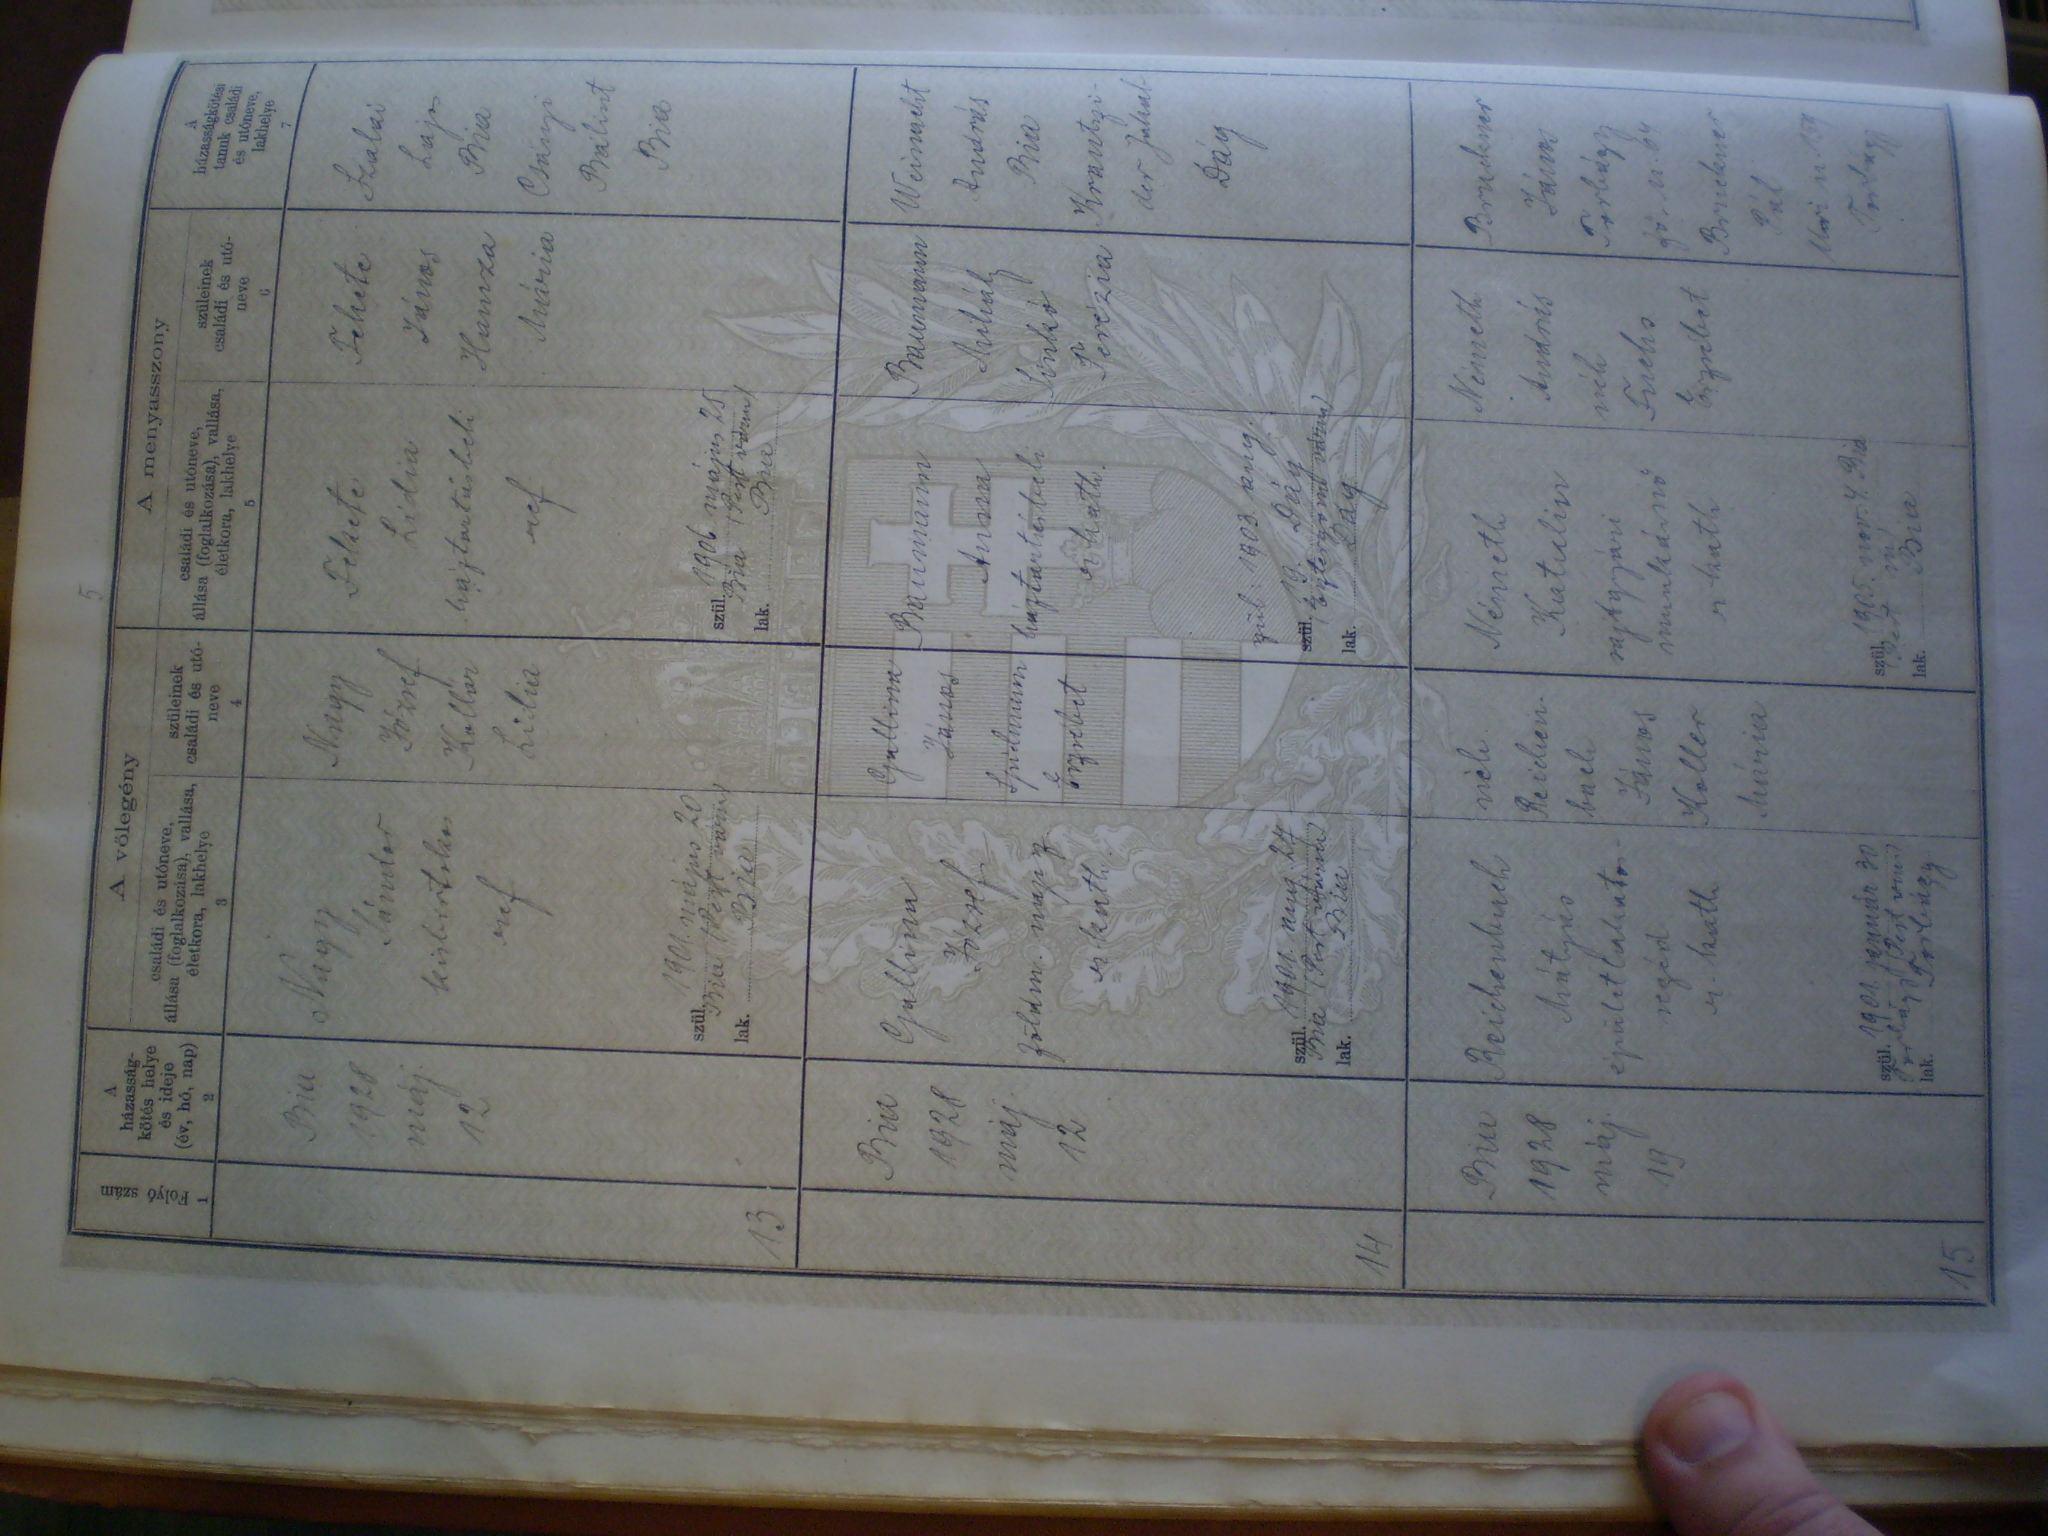 5
Folyó szám
1
A házasság-
kötés helye
és ideje
(év, hó, nap)
2
A vőlegény
családi és utóneve,
állása (foglalkozása), vallása,
életkora, lakhelye
3
szüleinek
családi és utó-
neve
4
A menyasszony
családi és utóneve,
állása (foglalkozása), vallása,
életkora, lakhelye
5
szüleinek
családi és utó-
neve
6
A
házasságkötési
tanuk családi
és utóneve,
lakhelye
7
13
Bia
1928
máj.
12
Nagy
Sándor
kisbirtokos
ref
szül. 1901. május 20
Bia (Pest várm)
lak. Bia
Nagy
József
Kollár
Lidia
Fekete
Lidia
háztartásbeli
ref
szül. 1906 május 25
Bia (Pest várm)
lak. Bia
Fekete
János
Hamza
Mária
Szabai
Lajos
Bia
Csányi
Bálint
Bia
14
Bia
1928
máj.
12
Gallina
József
földm. nap
r kath.
szül. 1901 aug. 24
Bia (Pest várm)
lak. Bia
Gallina
János
Spidmann
Erzsébet
Baumann
Anna
háztartásbeli
r kath.
szül: 1903. aug.
szül. 19. Dág
(Esztergom várm)
lak. Dág
Baumann
Mihály
Sinkó
Terézia
Weinacht
András
Bia
Dág
15
Bia
1928
máj.
19
Reichenbach
Mátyás
épületlakatos-
segéd
r. kath
szül. 1901 január 30
Torbágy (Pest várm)
lak. Torbágy
néh.
Reichen-
bach
János
Koller
Mária
Németh
Katalin
rajzgyári
munkásnő
r kath
szül. 1905. nov. 4. Bia
lak. Bia
Németh
András
néh
Fuchs
Erzsébet
Bruckner
János
Torbágy
Bruckner
Pál
Torbágy